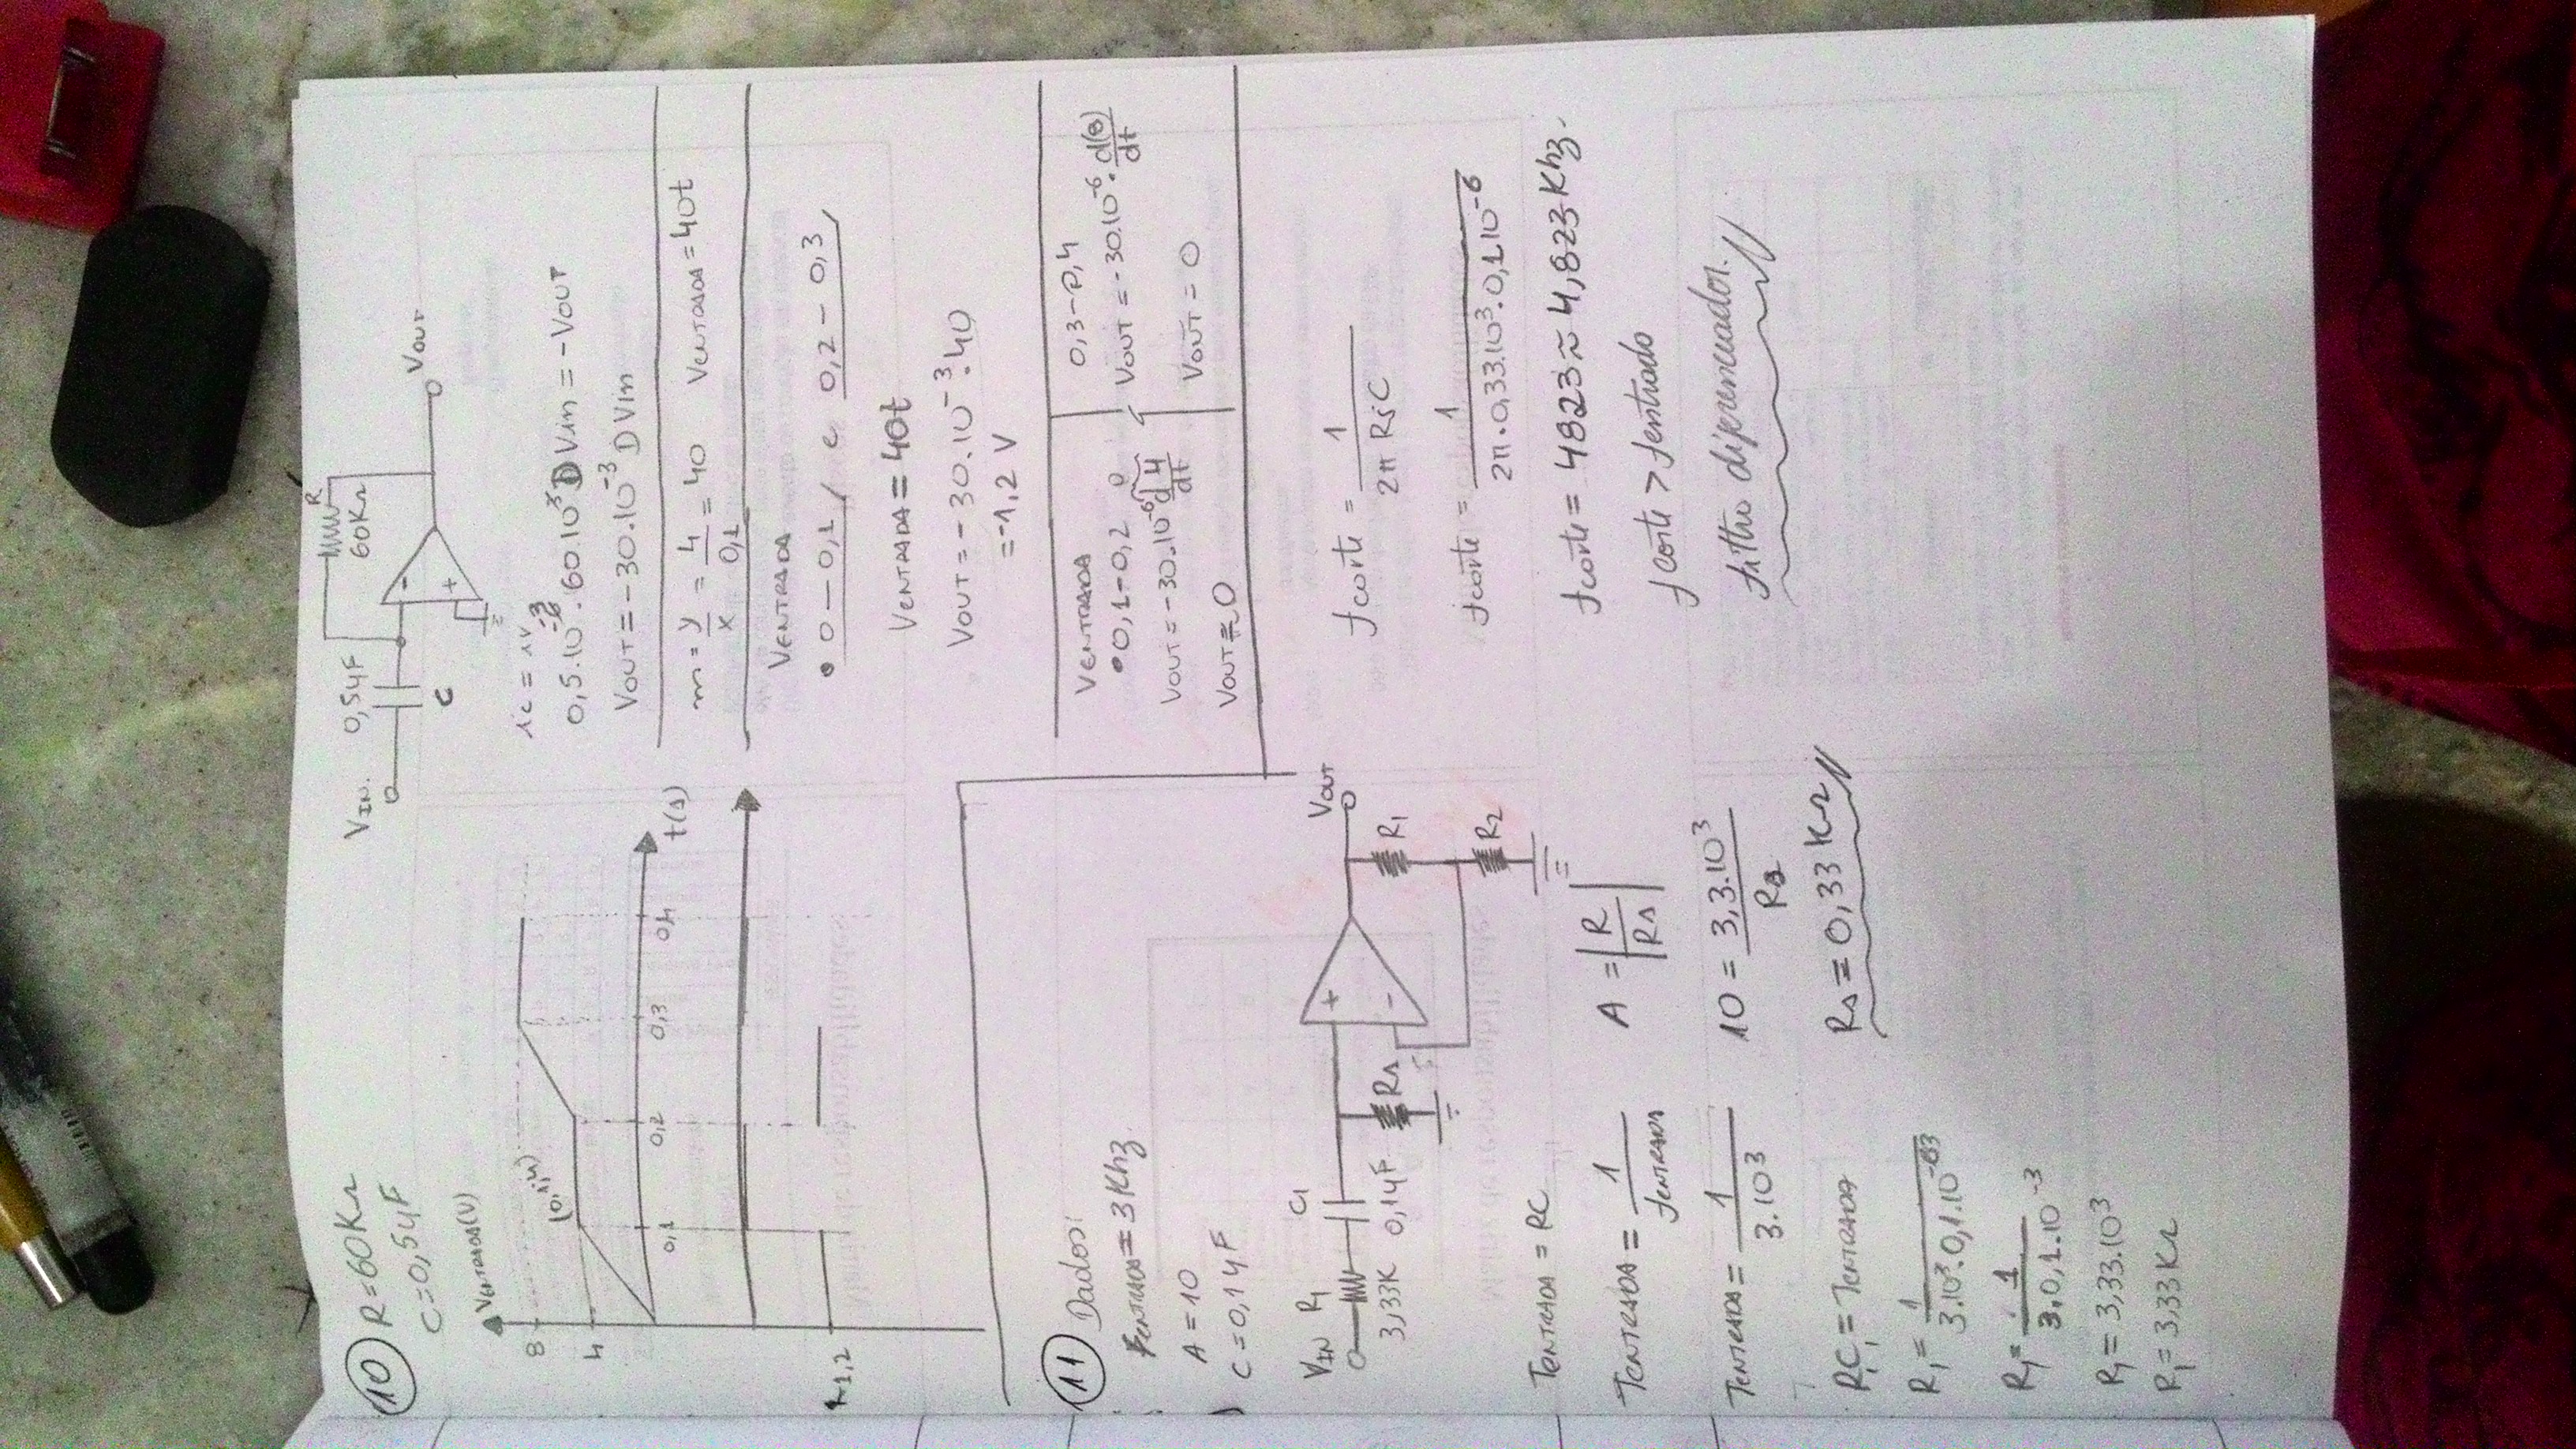 10 R=60KΩ
C=0,5μF
VENTRADA(V)
8
(0,1;4)
4
0,1 0,2 0,3 0,4
t(s)
-1,2
VIN. 0,5μF R
60KΩ
C
- +
VOUT
0,5.10^-6 . 60.10^3 D Vin = -VOUT
VOUT = -30.10^-3 D Vin
m = y/x = 4/0,1 = 40 VENTRADA = 40t
VENTRADA
• 0 - 0,1 / e 0,2 - 0,3 /
VENTRADA = 40t
VOUT = -30.10^-3 . 40
= -1,2 V
VENTRADA
• 0,1-0,2 0
VOUT = -30.10^-6 d 4/dt
VOUT = 0
0,3-0,4
VOUT = -30.10^-6 . d(8)/dt
VOUT = 0
11 Dados:
FENTRADA = 3Khz.
A = 10
C = 0,1μF
VIN R1 C1
3,33K 0,1μF Rs
+ -
VOUT
R1
R2
TENTRADA = RC
TENTRADA = 1/fENTRADA
TENTRADA = 1/3.10^3
R1C1 = TENTRADA
R1 = 1/3.10^3.0,1.10^-63
R1 = 1/3.0,1.10^-3
R1 = 3,33.10^3
R1 = 3,33KΩ
A = |R/Rs|
10 = 3,3.10^3/Rs
Rs = 0,33KΩ
fcorte = 1/2π RsC
fcorte = 1/2π.0,33.10^3.0,1.10^-6
fcorte = 4823 ≈ 4,823Khz.
fcorte > fentrada
filtro diferenciador.